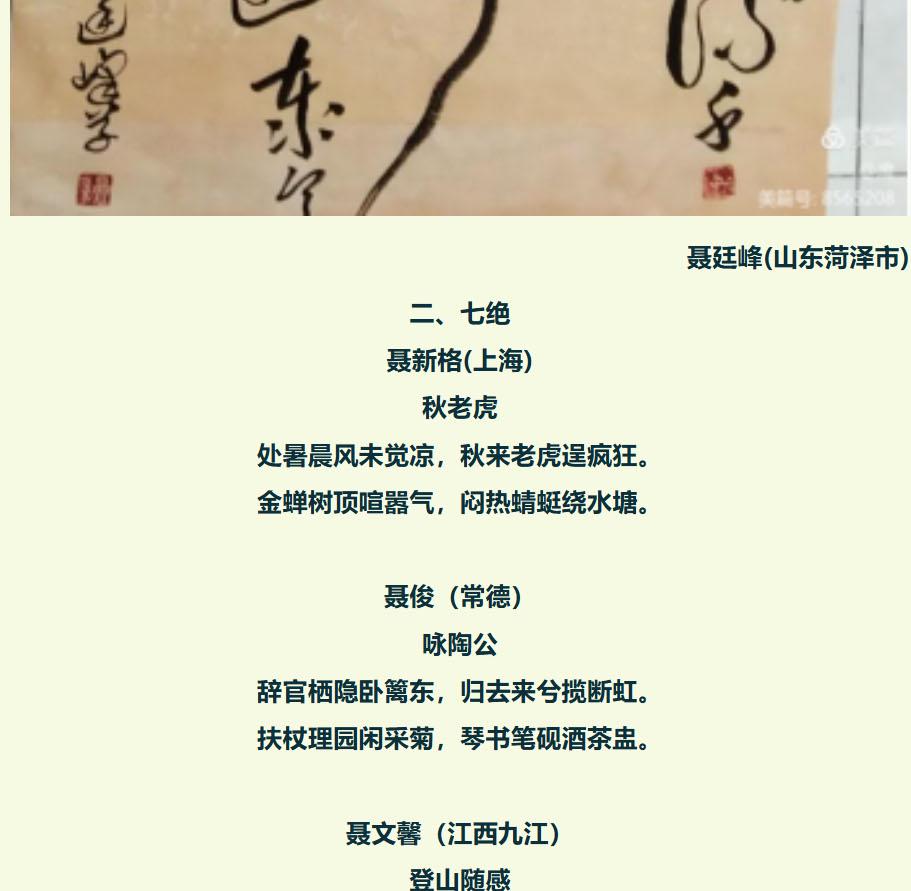 廷峰书
东
美篇号: 8565208
聂廷峰(山东菏泽市)
二、七绝
聂新格(上海)
秋老虎
处暑晨风未觉凉，秋来老虎逞疯狂。
金蝉树顶喧嚣气，闷热蜻蜓绕水塘。
聂俊（常德）
咏陶公
辞官栖隐卧篱东，归去来兮揽断虹。
扶杖理园闲采菊，琴书笔砚酒茶盅。
聂文馨（江西九江）
登山随感